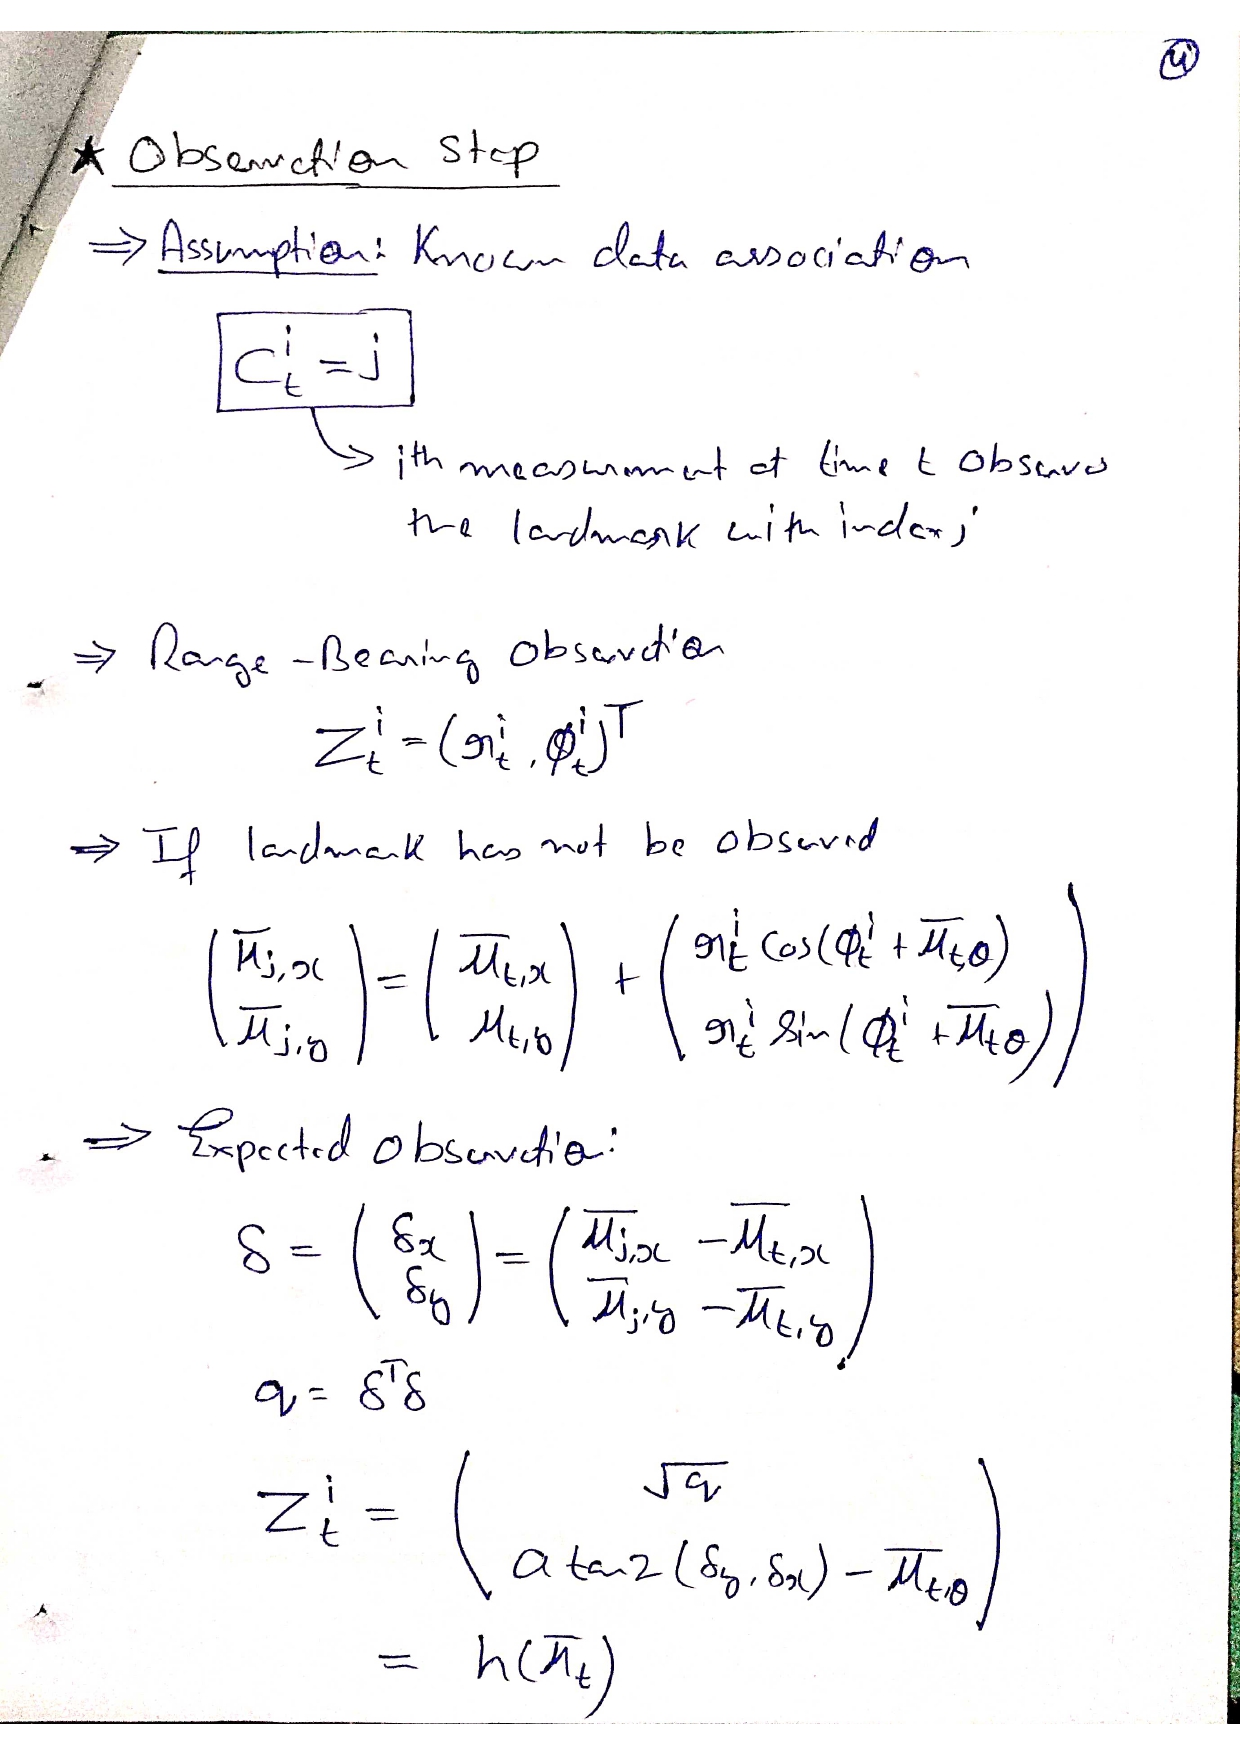 ④
★ Observation Step
⇒ Assumption: Known data association
C_t^i = j
ith measurement at time t observes
the landmark with index j
⇒ Range-Bearing Observation
Z_t^i = (r_t^i, φ_t^i)^T
⇒ If landmark has not be observed
(μ̄_{j,x} ; μ̄_{j,y}) = (μ̄_{t,x} ; μ_{t,y}) + (r_t^i cos(φ_t^i + μ̄_{t,θ}) ; r_t^i sin(φ_t^i + μ̄_{t,θ}))
⇒ Expected observation:
δ = (δx ; δy) = (μ̄_{j,x} − μ̄_{t,x} ; μ̄_{j,y} − μ̄_{t,y})
q = δ^T δ
Z_t^i = (√q ; atan2(δy, δx) − μ̄_{t,θ})
= h(μ̄_t)